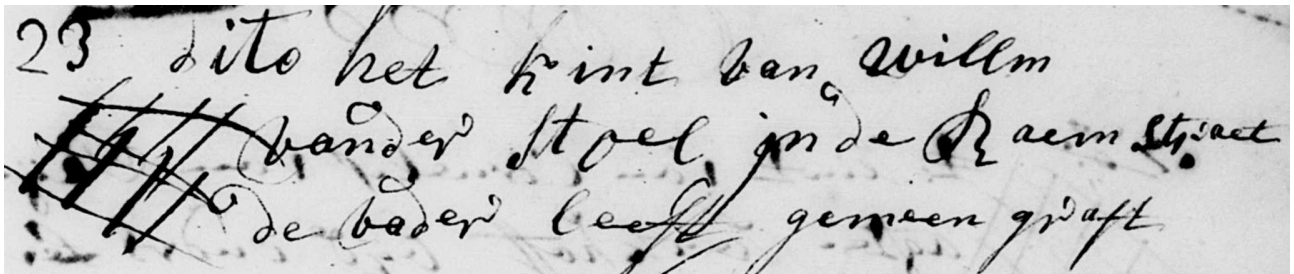 23 dito het kint van willm
vander stoel inde Raemstraet
de vader leeft gemeen graft